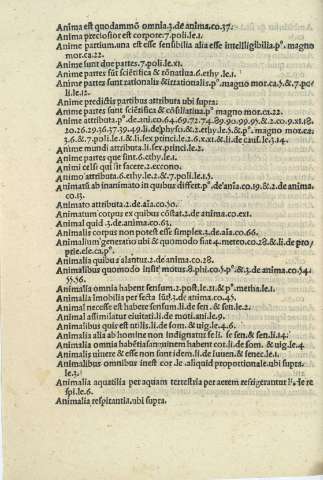 Anima est quodammō omnia.3.de anima.co.37.
Anima preciosior est corpore.7.poli.le.1.
Anime partium.una est esse sensibilia alia esse intelligibilia.pº.magno
mor.ca.22.
Anime sunt due partes.7.poli.le.xi.
Anime partes sūt sciētifica & rōnatiua.6.ethy.le.1.
Anime partes sunt rationalis &irrationalis.pº.magno mor.ca.5.&.7.po
li.le.12.
Anime predictis partibus attributa ubi supra:
Anime partes sunt sciētifica & cōsiliatiua.pº.magno mor.ca.22.
Anime attributa.pº.de ani.co.64.69.72.74.89.90.99.95.&.2.co.9.x1.18
20.26.29.36.37.39.49.li.de physi.&.2.ethy.le.5.&.pº.magno mor.ca
3.6.&.7.poli.le.1.&.li.sex princi.le.2.6.xxi.&.li.de cauſ.le.3.14.
Anime mundi attributa.li.sex princi.le.2.
Anime partes que sint.6.ethy.le.1.
Animi celsi qui sit facere.2.eccono.
Animo attributa.6.ethy.le.2.&.7.poli.le.1.15.
Animatū ab inanimato in quibus differt.pº.de aīa.co.19.&.2.de anima.
co.13.
Animato attributa.2.de aīa.co.50.
Animatum corpus ex quibus cōstat.2.de anima.co.x1.
Animal quid.3.de anima.co.63.
Animalis corpus non potest esse simplex.3.de aīa.co.66.
Animalium generatio ubi & quomodo fiat.4.metro.co.28.&.li.de pro
prie.ele.ca.pº.
Animalia quibus alantur.2.de anima.co.28.
Animalibus quomodo insit motus.8.phi.co.5.pº.&.3.de anima.co.54
55.56.
Animalia omnia habent sensum.2.post.le.x1.&.pº.metha.le.1.
Animalia imobilia per secta sūt.3.de anima.co.45.
Animal necesse est habere sensum.li.de sen.&.sen.le.2.
Animal assimilatur ciuitati.li.de moti.ani.le.9.
Animalibus quis est utilis.li.de som.& uig.le.6.
Animalia alia ab homine non indignatur se li. se sen.& sen.li.14:
Animalia omnia habētia sanguinem habent cor.li.de som. & uig.le.4
Animalis uiuere & esse non sunt idem.li.de iuuen.& senec.le.1.
Animalibus omnibus inest cor.le.aliquid proportionale.ubi supra.
le.3.
Animalia aquatilia per aquam terrestria per aerem refrigerantur li.le re
spi.le.6.
Animalia respirantia.ubi supra.